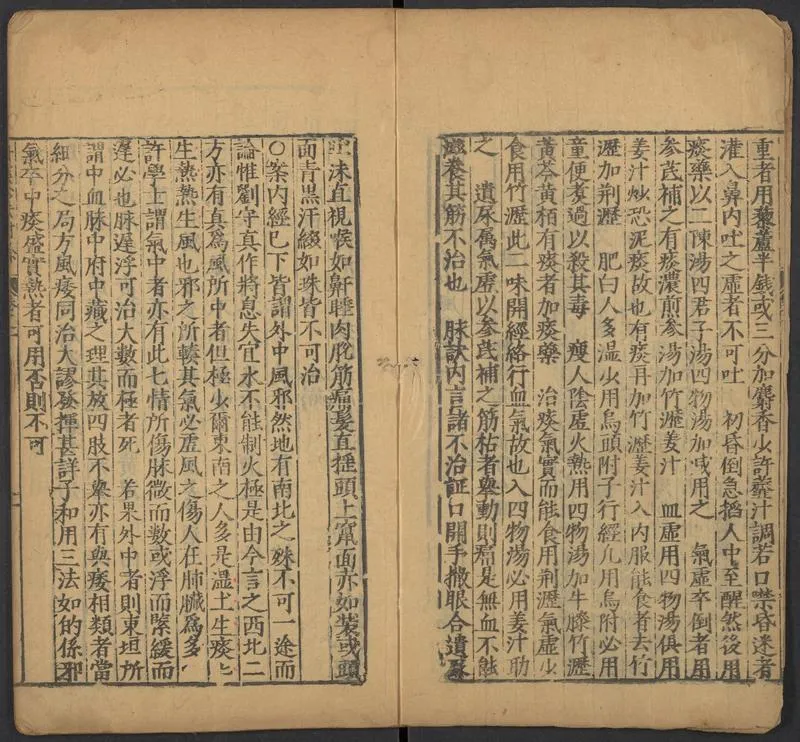 重者用藜蘆半錢或三分加麝香少許虀汁調若口噤昏迷者
灌入鼻內吐之虛者不可吐　初昏倒急掐人中至醒然後用
痰藥以二陳湯四君子湯四物湯加咸用之　氣虛卒倒者用
參芪補之有痰濃煎參湯加竹瀝姜汁　血虛用四物湯俱用
姜汁炒恐泥痰故也有痰再加竹瀝姜汁入內服能食者去竹
瀝加荆瀝　肥白人多溫少用烏頭附子行經凢用烏附必用
童便煮過以殺其毒　瘦人陰虛火熱用四物湯加牛膝竹瀝
黃芩黃栢有痰者加痰藥　治痰氣實而能食用荆瀝氣虛少
食用竹瀝此二味開經絡行血氣故也入四物湯必用姜汁助
之　遺尿屬氣虛以參芪補之筋枯者舉動則痛是無血不能
滋養其筋不治也　脉訣內言諸不治証口開手撒眼合遺尿
吐沫直視喉如鼾睡肉脫筋痛髮直摇頭上竄面赤如裝或頭
面青黑汗綴如珠皆不可治
○案內經已下皆謂外中風邪然地有南北之殊不可一途而
論惟劉守真作將息失宜水不能制火極是由今言之西北二
方亦有真爲風所中者但極少爾東南之人多是溫土生痰〻
生熱熱生風也邪之所輳其氣必虛風之傷人在肺臟爲多
許學士謂氣中者亦有此七情所傷脉微而數或浮而緊緩而
遲必也脉遲浮可治大數而極者死　若果外中者則東垣所
謂中血脉中府中藏之理其放四肢不舉亦有與痿相類者當
細分之局方風痿同治大謬發揮甚詳子和用三法如的係邪
氣卒中痰盛實熱者可用否則不可